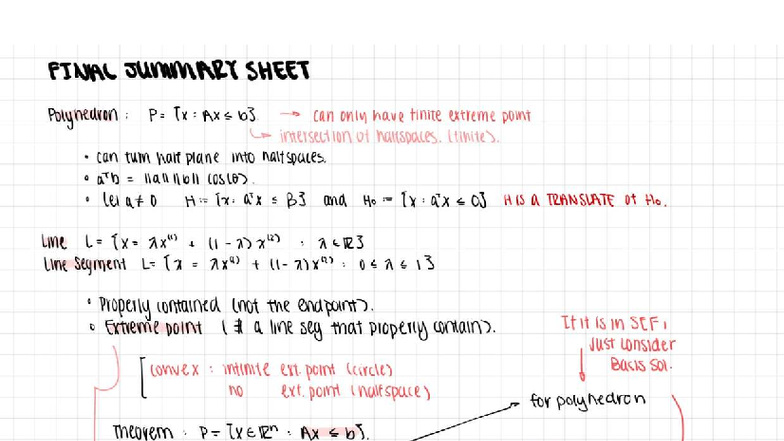 FINAL SUMMARY SHEET
Polyhedron : P = {x : Ax ≤ b} → can only have finite extreme point
↳ intersection of halfspaces. (finite).
• can turn half plane into halfspaces.
• aᵀb = ||a|| ||b|| cos(θ).
• Let a ≠ 0 H := {x : aᵀx ≤ β} and H₀ := {x : aᵀx ≤ 0} H is a TRANSLATE of H₀.
Line L = {x = λx⁽¹⁾ + (1 - λ) x⁽²⁾ : λ ∈ ℝ}
Line Segment L = {x = λx⁽¹⁾ + (1 - λ)x⁽²⁾ : 0 ≤ λ ≤ 1}
• Properly contained (not the endpoint).
• Extreme point (∄ a line seg that properly contain).
If it is in SEF,
just consider
Basis sol.
convex : infinite ext. point (circle)
no ext. point (halfspace)
for polyhedron
Theorem : P = {x ∈ ℝⁿ : Ax ≤ b}.